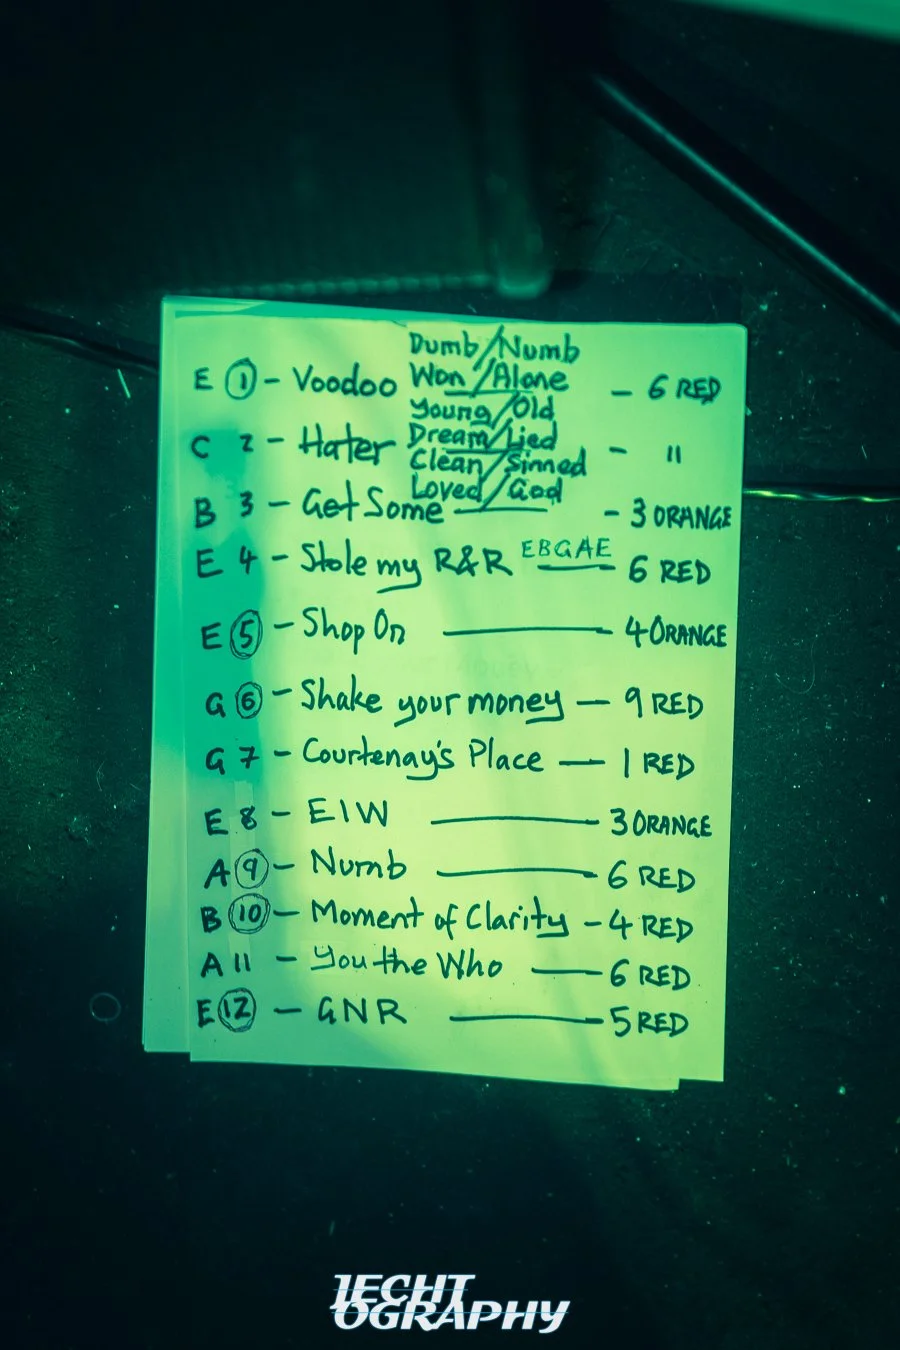 Dumb/Numb
E 1 - Voodoo Won/Alone - 6 RED
Young/Old
C 2 - Hater Dream/Lied - "
Clean/Sinned
Loved/God
B 3 - Get Some - 3 ORANGE
E 4 - Stole my R&R EBGAE 6 RED
E 5 - Shop On — 4 ORANGE
G 6 - Shake your money — 9 RED
G 7 - Courtenay's Place — 1 RED
E 8 - EIW — 3 ORANGE
A 9 - Numb — 6 RED
B 10 - Moment of Clarity - 4 RED
A 11 - You the Who — 6 RED
E 12 - GNR — 5 RED
JECHT
OGRAPHY